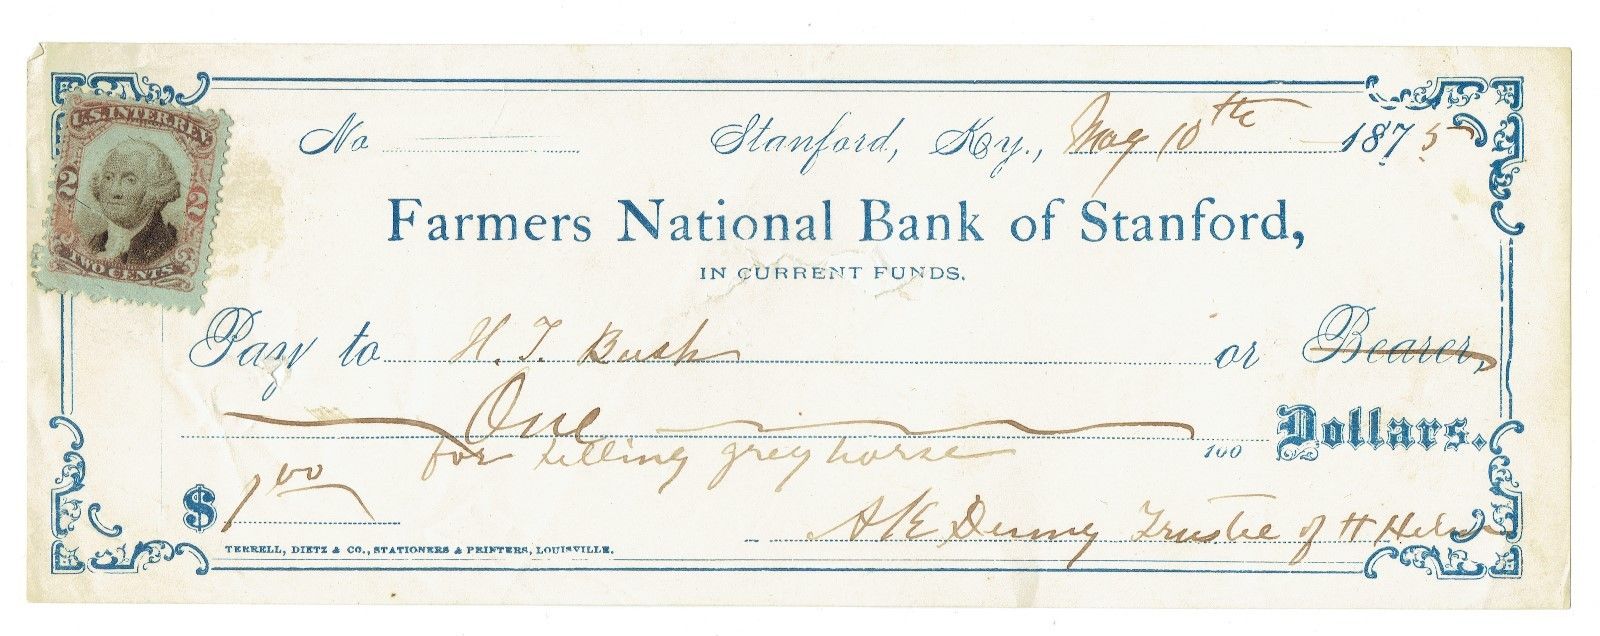 U.S. INTER. REV.
2 2
TWO CENTS
No
Stanford, Ky., May 10th 1875
Farmers National Bank of Stanford,
IN CURRENT FUNDS.
Pay to H. T. Bush or Bearer,
One 100 Dollars.
for selling grey horse
$ 1.00
A K Denny Trustee of H
TERRELL, DIETZ & CO., STATIONERS & PRINTERS, LOUISVILLE.